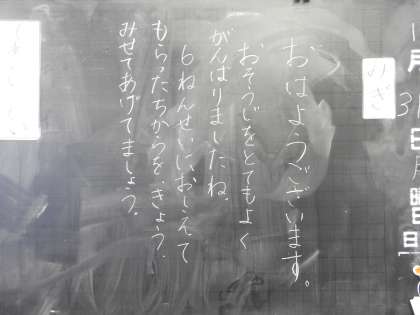 1月31日月曜日
みぎ
おはようございます。
おそうじをとてもよく
がんばりましたね。
6ねんせいにおしえて
もらったちからを、きょう、
みせてあげてましょう。